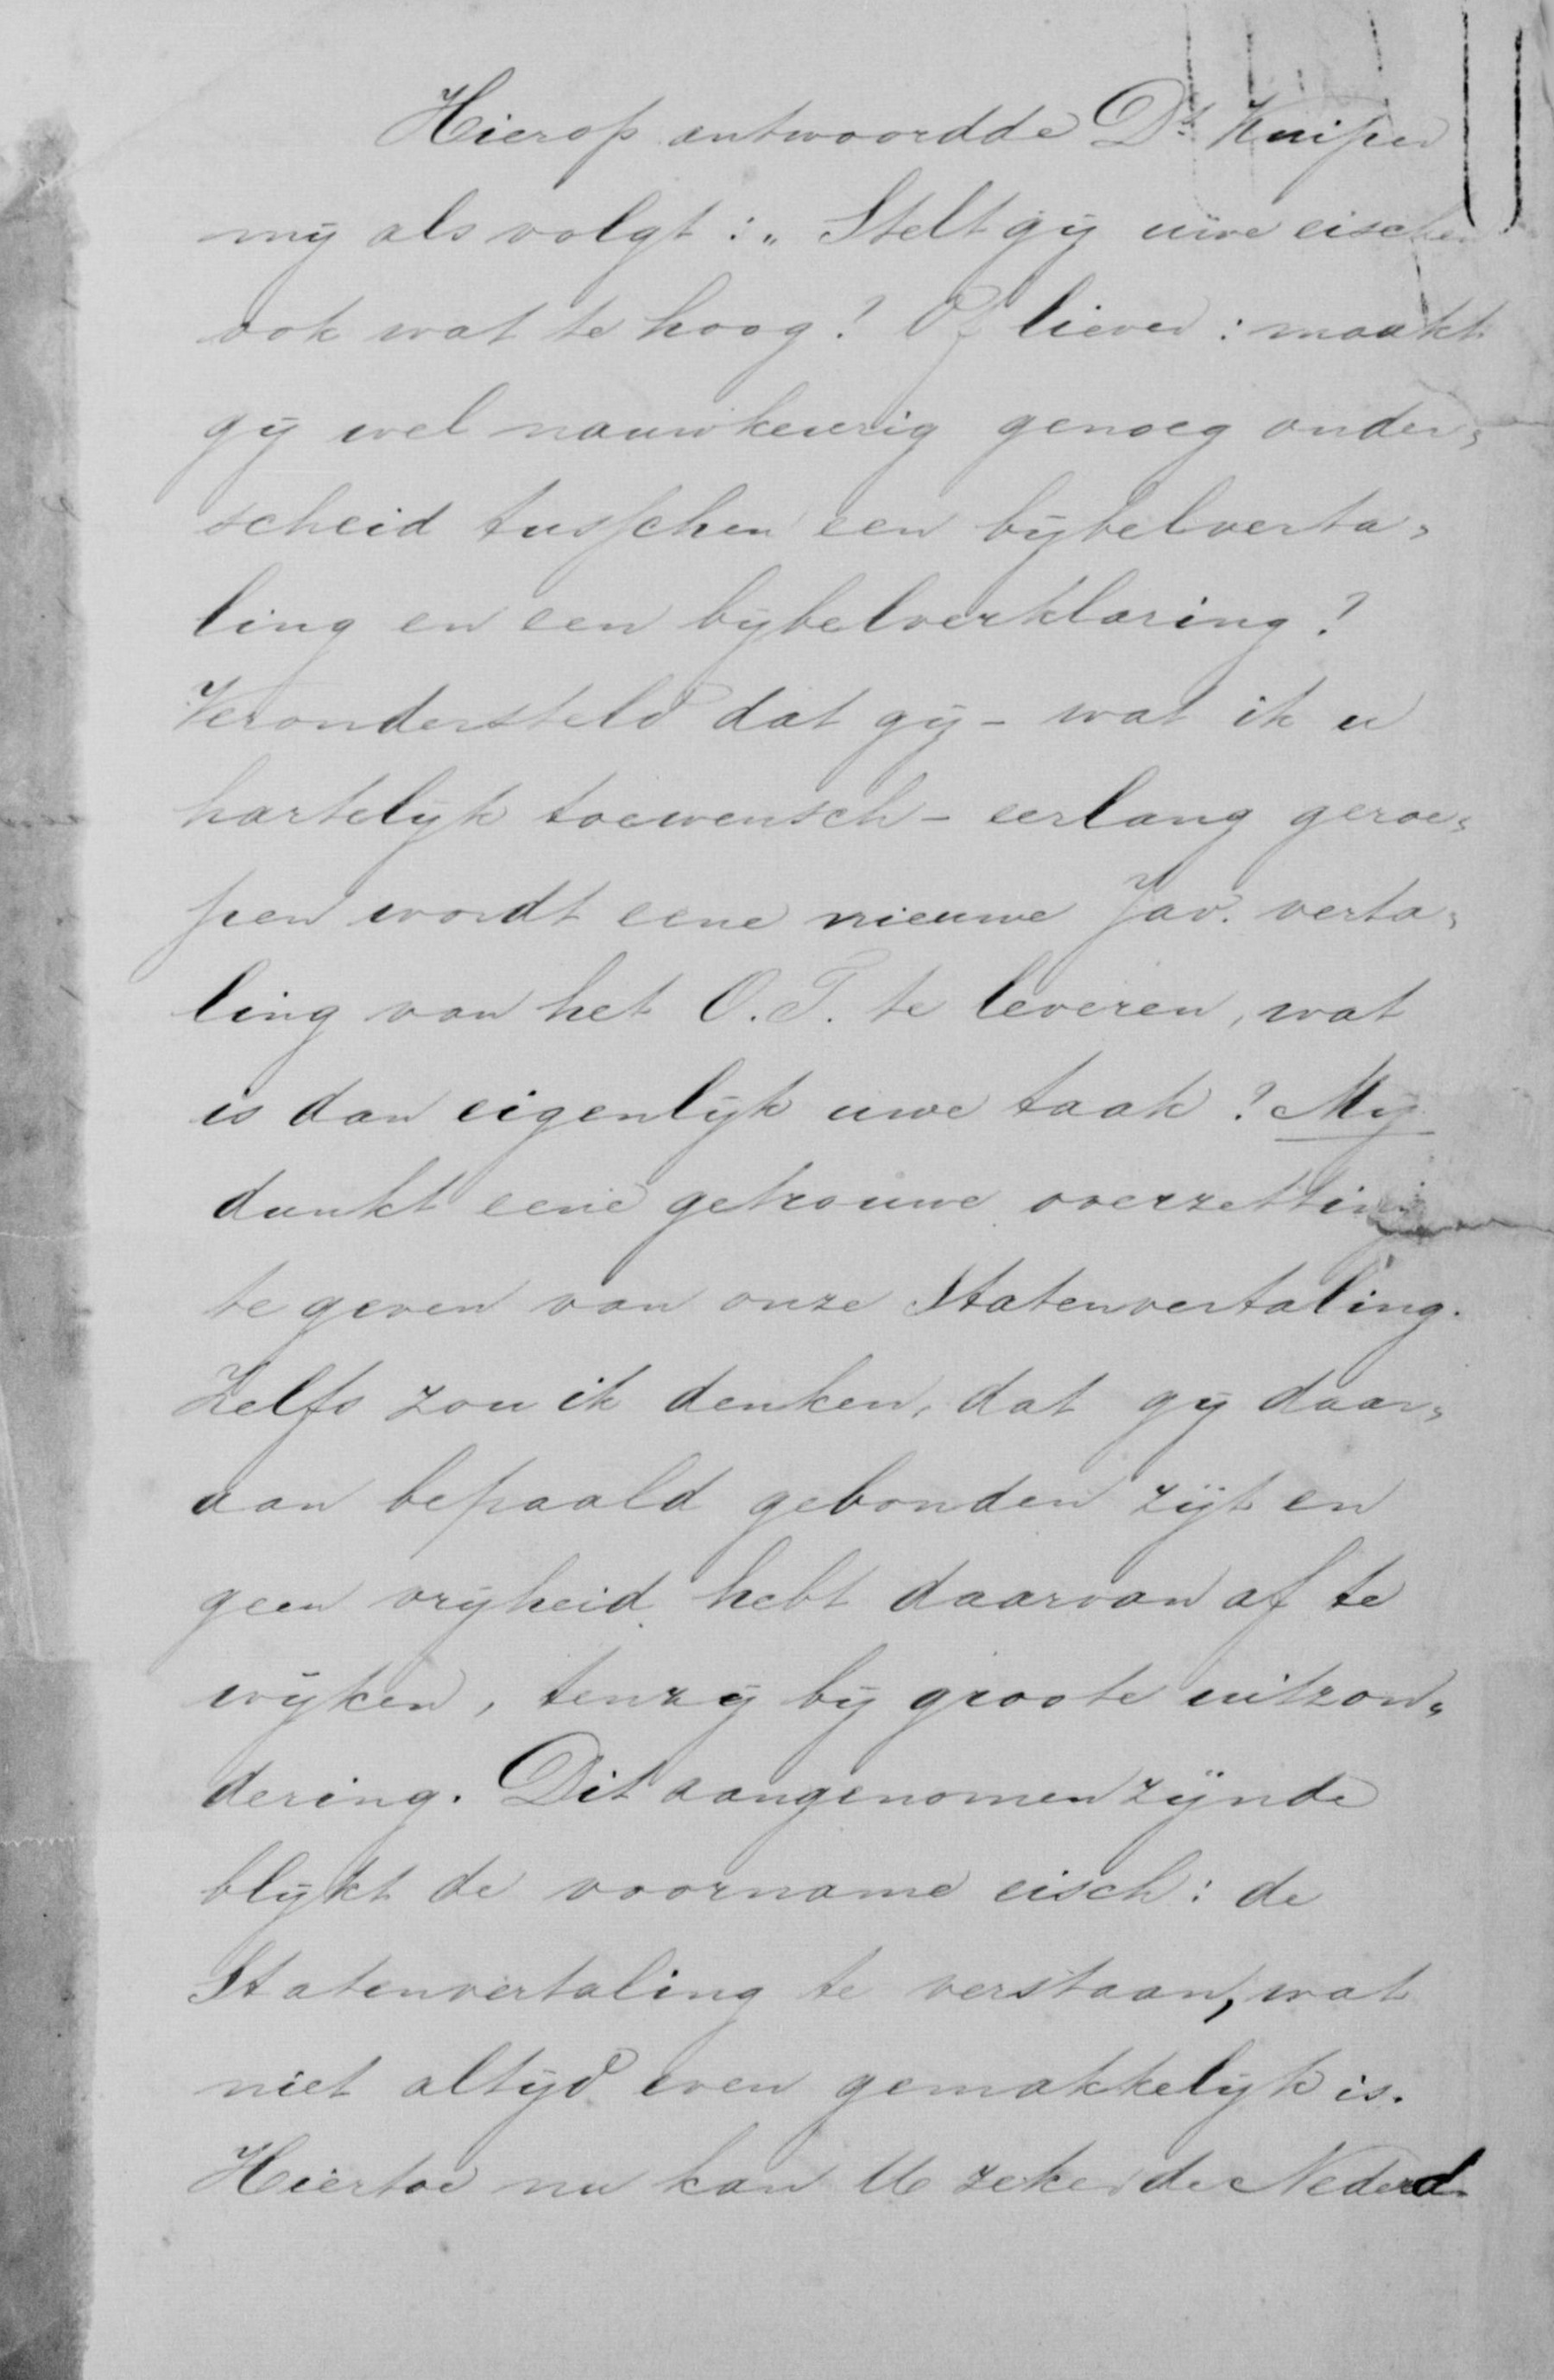 Hierop antwoordde Ds Kuiper
mij als volgt : „ Stelt gij uwe eischen
ook wat te hoog? Of liever : maakt
gij wel nauwkeurig genoeg onder„
scheid tusschen een bijbelverta„
ling en een bijbelverklaring?
Verondersteld dat gij - wat ik u
hartelijk toewensch - eerlang geroe„
pen wordt eene nieuwe Jav. verta„
ling van het O.T. te leveren, wat
is dan eigenlijk uwe taak? Mij
dunkt eene getrouwe overzetting
te geven van onze Statenvertaling.
Zelfs zou ik denken, dat gij daar„
aan bepaald gebonden zijt en
geen vrijheid hebt daarvan af te
wijken, tenzij bij groote uitzon„
dering. Dit aangenomen zijnde
blijkt de voorname eisch: de
Statenvertaling te verstaan, wat
niet altijd even gemakkelijk is.
Hiertoe nu kan U zeker de Nederd.